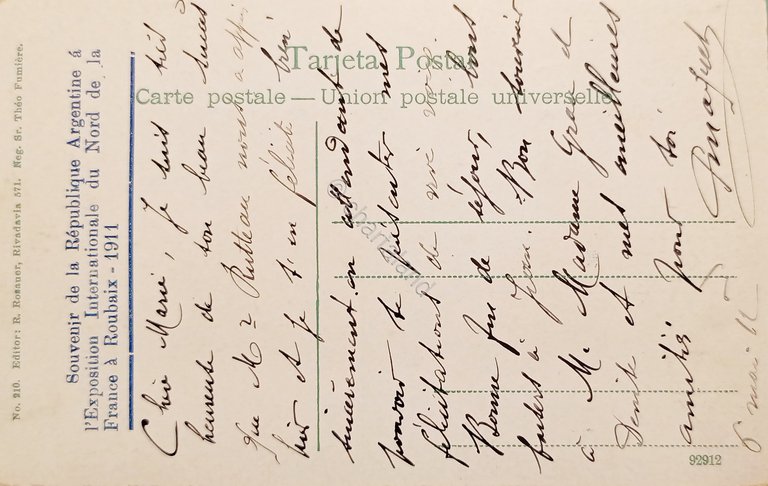 Tarjeta Postal
Carte postale — Union postale universelle
No. 910. Editor: R. Rosauer, Rivadavia 571. Neg. Sr. Théo Fumière.
Souvenir de la République Argentine á
l'Exposition Internationale du Nord de la
France à Roubaix - 1911
Chère Marie, Je suis très
heureuse de ton beau succès
que Mr Rutteau nous a appris
hier et je t'en félicite bien
sincèrement en attendant de
pouvoir te présenter mes
félicitations de vive voix
Bonne fin de séjour, tous
à Jean. Bon souvenir
à M. Madame Grard
Denise et mes meilleures
amitiés pour toi
6 mai 11
92912
© sbarrland